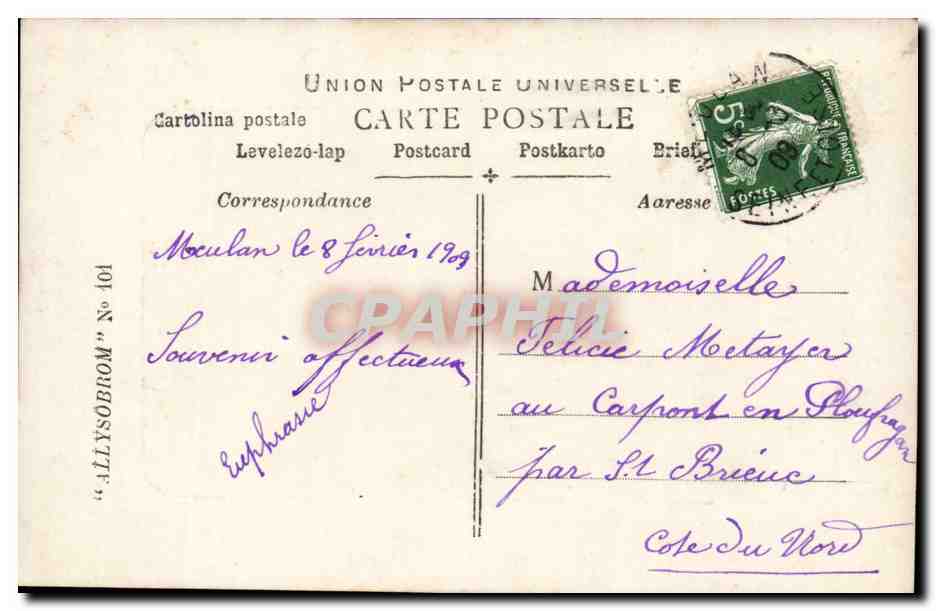 UNION POSTALE UNIVERSELLE
Cartolina postale CARTE POSTALE
Levelezo-lap Postcard Postkarto Brief
Correspondance
Adresse
Meulan le 8 févrièr 1909
Souvenir affectueux
Euphrasie
Mademoiselle
Félicie Metayer
au Carpont en Ploufragan
par St Brieuc
Cote du Nord
"ALLYSOBROM" No 101
CPAPHIL
5
REPUBLIQUE FRANÇAISE
POSTES
MEULAN
09
SEINE ET OISE